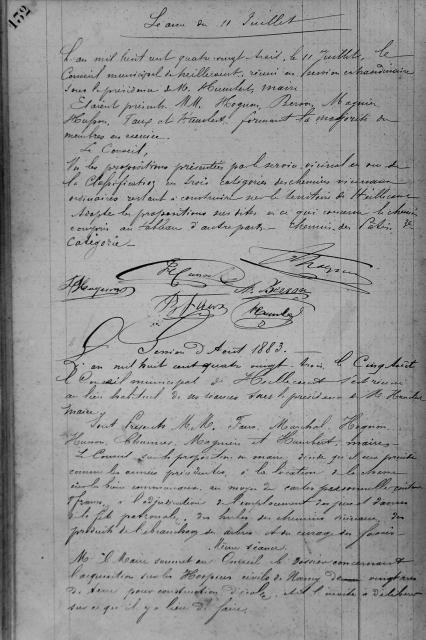 132
Séance du 11 Juillet
L'an mil huit cent quatre vingt trois, le 11 Juillet, le
Conseil municipal de Heillecourt, réuni en session extraordinaire
sous la présidence de M. Humbert, maire
Etaient présents MM. Hognon, Masson, Magnin
Husson, Faux et Humbert, formant la majorité des
membres en exercice.
Le Conseil,
Vu les propositions présentées par le service vicinal en vue de
la Classification en trois catégories des chemins vicinaux
ordinaires restant à construire sur le territoire de Heillecourt
Adopte les propositions sus dites en ce qui concerne le chemin
compris au tableau d'autre part. Chemin des Patis 3e
Catégorie
Hognon
Husson
Magnin
Humbert
Session d'Août 1883.
L'an mil huit cent quatre vingt trois, le Cinq Août
le Conseil municipal de Heillecourt s'est réuni
au lieu habituel de ses séances sous la présidence de M. Humbert
maire
Sont Présents M.M. Faux, Marchal, Hognon
Husson, Magnin et Humbert, maire
Le Conseil sur la proposition du maire, décide qu'il sera procédé
comme les années précédentes, à la location de la chasse
sur les biens communaux, au moyen de cartes personnelles
francs, à l'adjudication de l'emplacement des jeux et danses
à la fête patronale, des herbes des chemins vicinaux, des
produits de l'ébranchage des arbres et du curage des fossés
Même séance
M. le Maire soumet au Conseil le dossier concernant
l'acquisition sur les Hospices civils de Nancy de vingt ares
de terre pour construction d'école, et l'invite à délibérer
sur ce qu'il y a lieu de faire.